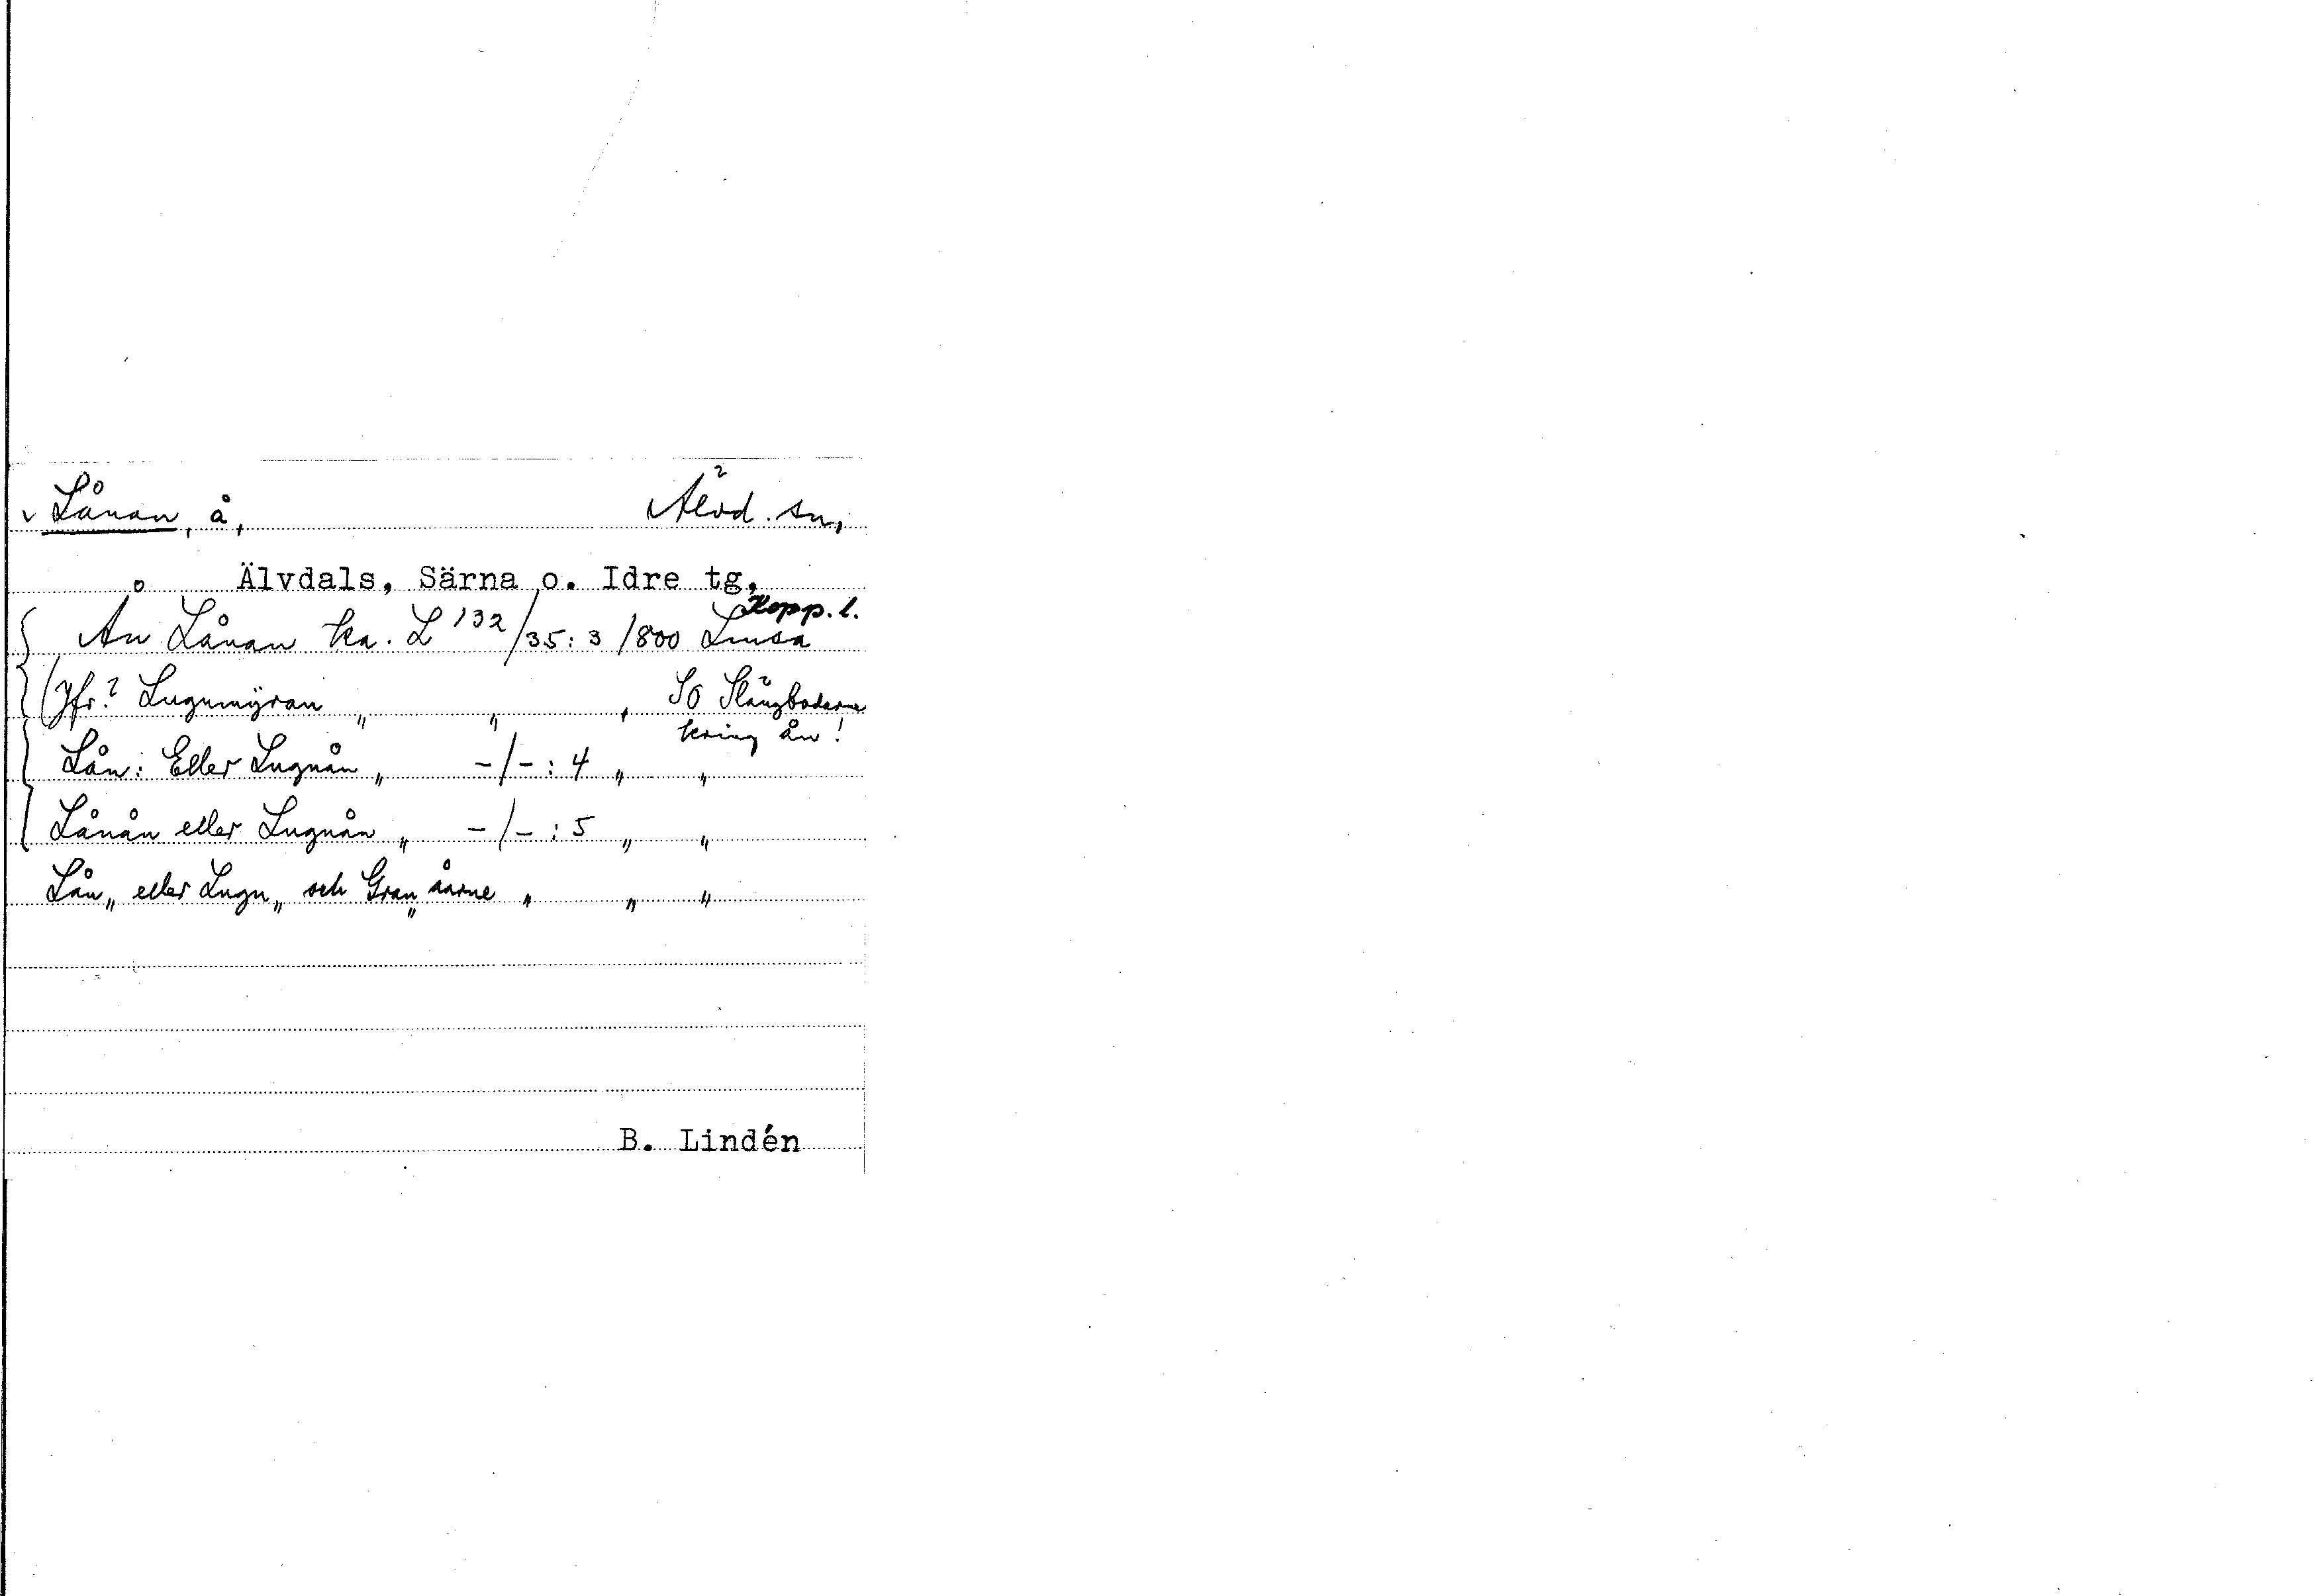 v Lånan, å, Älvd. sn,
Älvdals, Särna o. Idre tg,
Kopp. l.
Ån Lånan ka. L 132/35:3 1800 Lmsa
(Jfr? Lugnmÿran „ „ , SO Slängbodarne
kring ån!
Lån: Eller Lugnån „ -/-: 4 „ „
Lånån eller Lugnån „ -/-: 5 „ „
Lån„ eller Lugn„ och Gran„ åarne „ „ „
B. Lindén